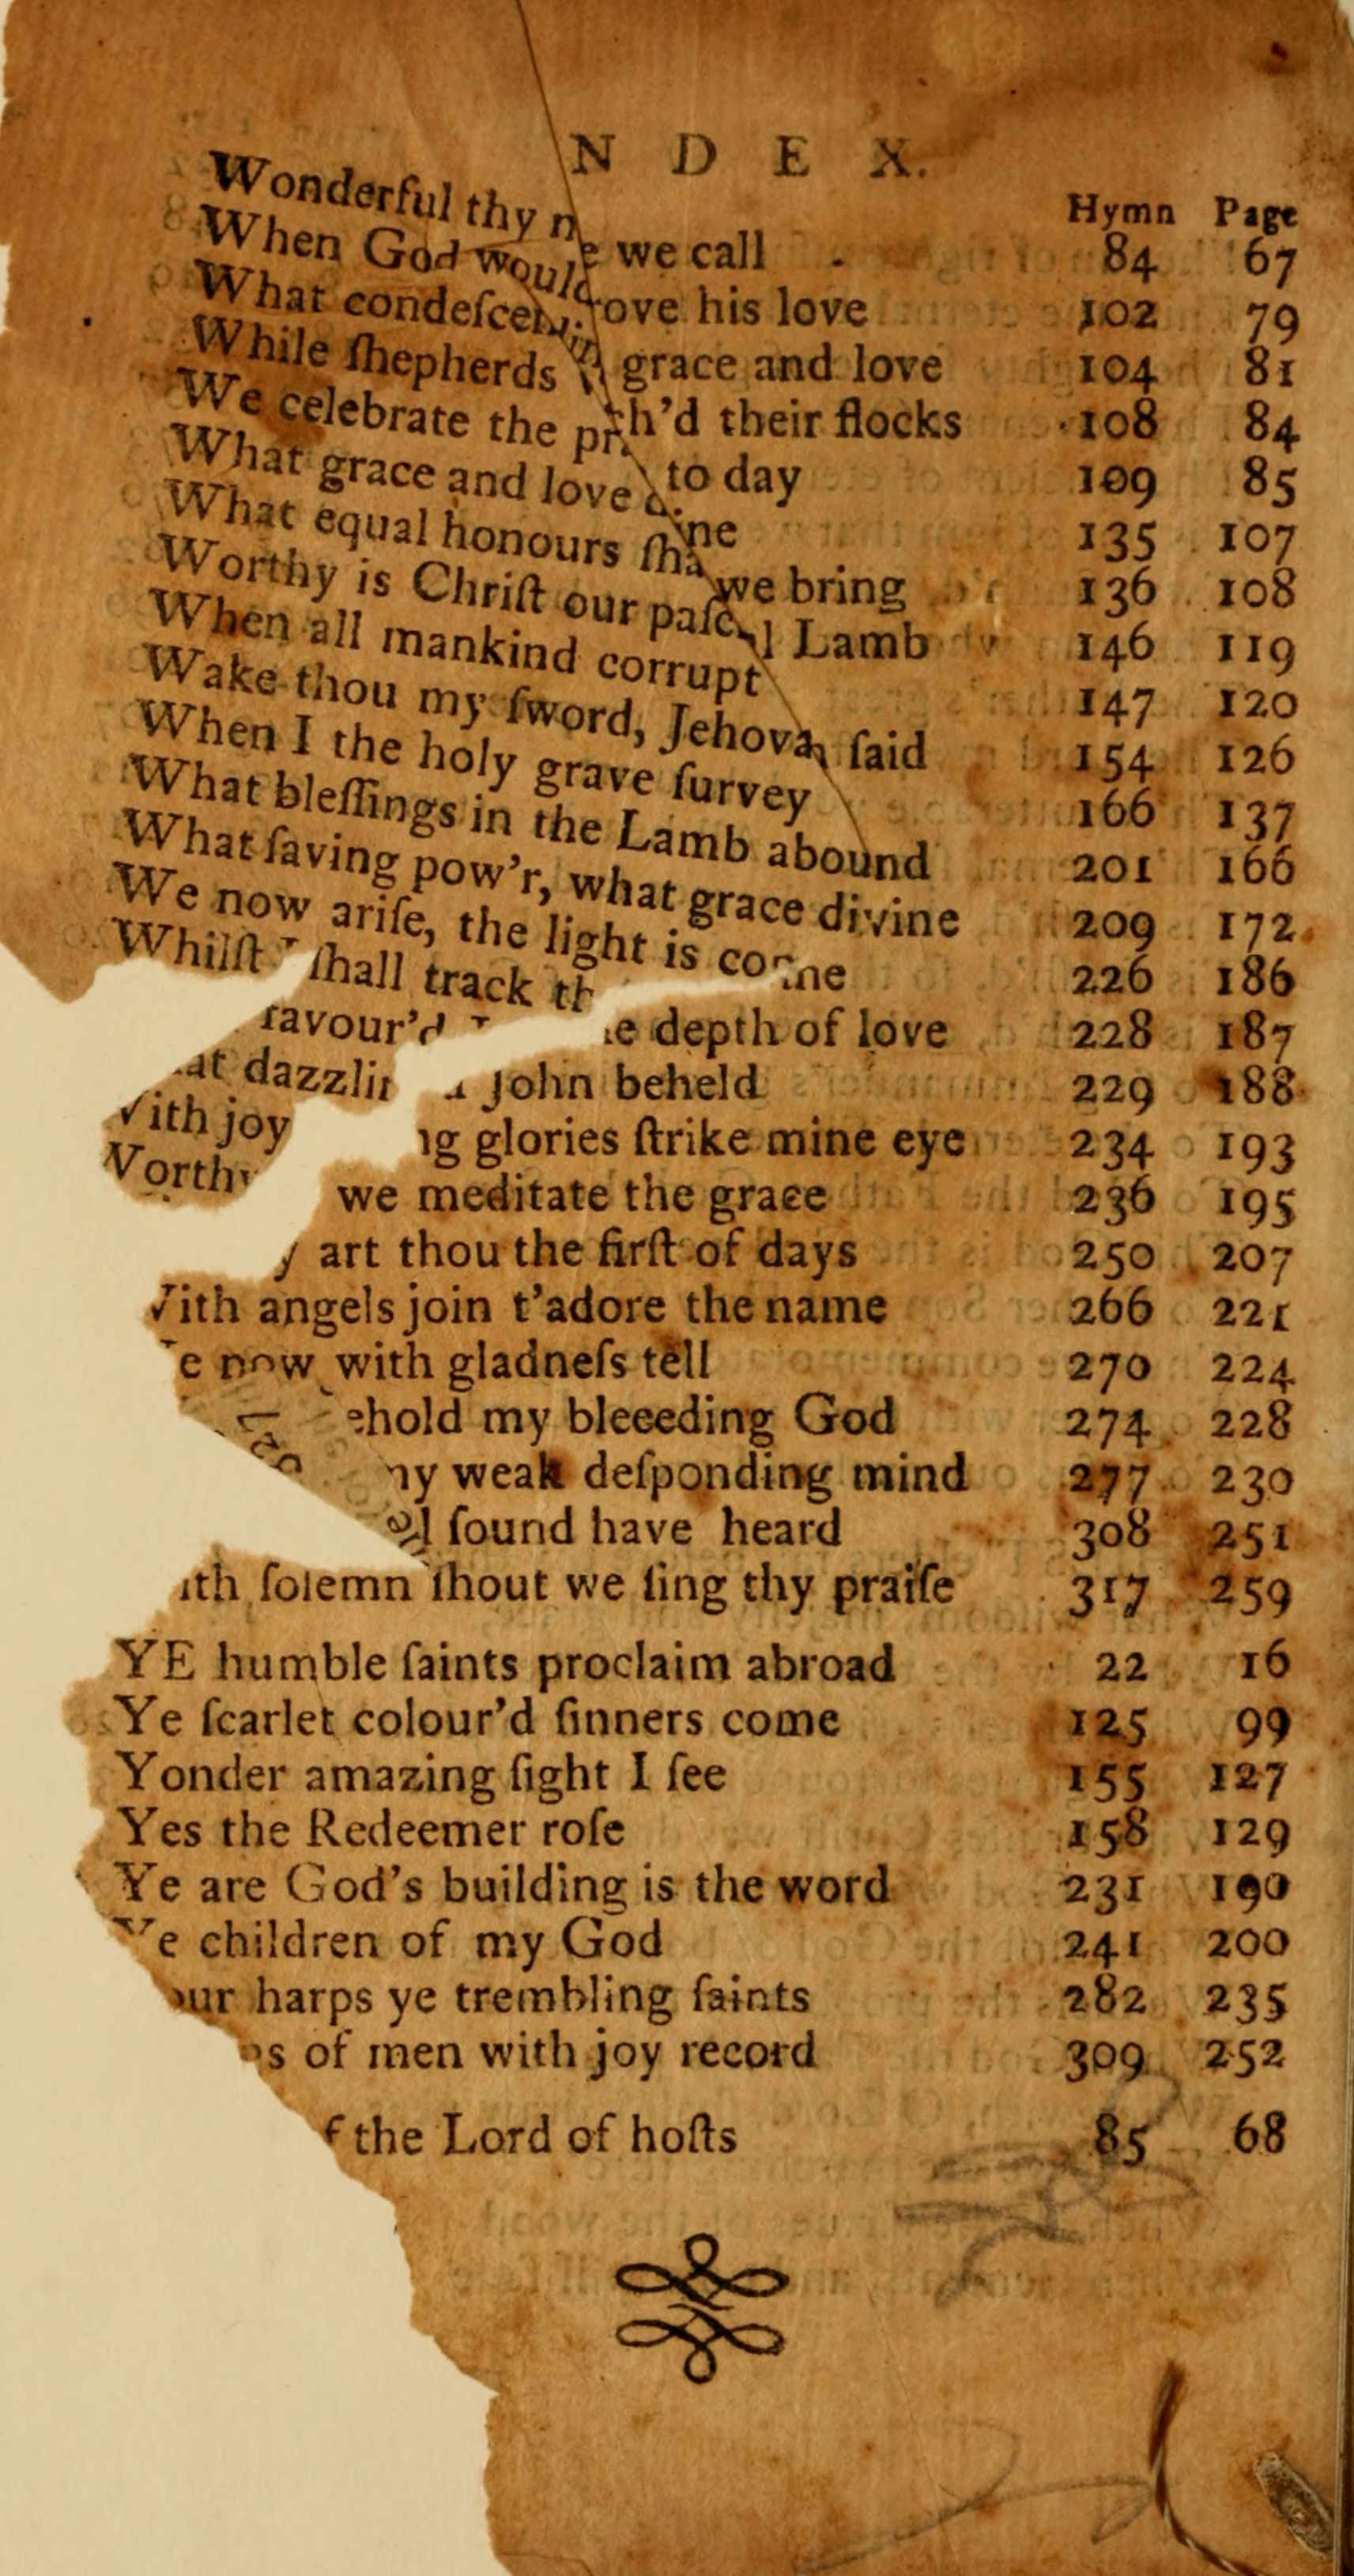 N D E X.
Hymn Page
Wonderful thy n e we call 84 67
When God would ove his love 102 79
What condeſcen din grace and love 104 81
While ſhepherds w ch'd their flocks 108 84
We celebrate the pr to day 109 85
What grace and love d ine 135 107
What equal honours ſha we bring 136 108
Worthy is Chriſt our paſc l Lamb 146 119
When all mankind corrupt 147 120
Wake thou my ſword, Jehovah ſaid 154 126
When I the holy grave ſurvey 166 137
What bleſſings in the Lamb abound 201 166
What ſaving pow'r, what grace divine 209 172
We now ariſe, the light is come 226 186
Whilſt I ſhall track th e depth of love 228 187
favour'd John beheld 229 188
at dazzlin ng glories ſtrike mine eye 234 193
With joy we meditate the grace 236 195
Worthy art thou the firſt of days 250 207
With angels join t'adore the name 266 221
e now with gladneſs tell 270 224
ehold my bleeeding God 274 228
my weak deſponding mind 277 230
l ſound have heard 308 251
ith ſolemn ſhout we ſing thy praiſe 317 259
YE humble ſaints proclaim abroad 22 16
Ye ſcarlet colour'd ſinners come 125 99
Yonder amazing ſight I ſee 155 127
Yes the Redeemer roſe 158 129
Ye are God's building is the word 231 190
Ye children of my God 241 200
our harps ye trembling ſaints 282 235
s of men with joy record 309 252
f the Lord of hoſts 85 68